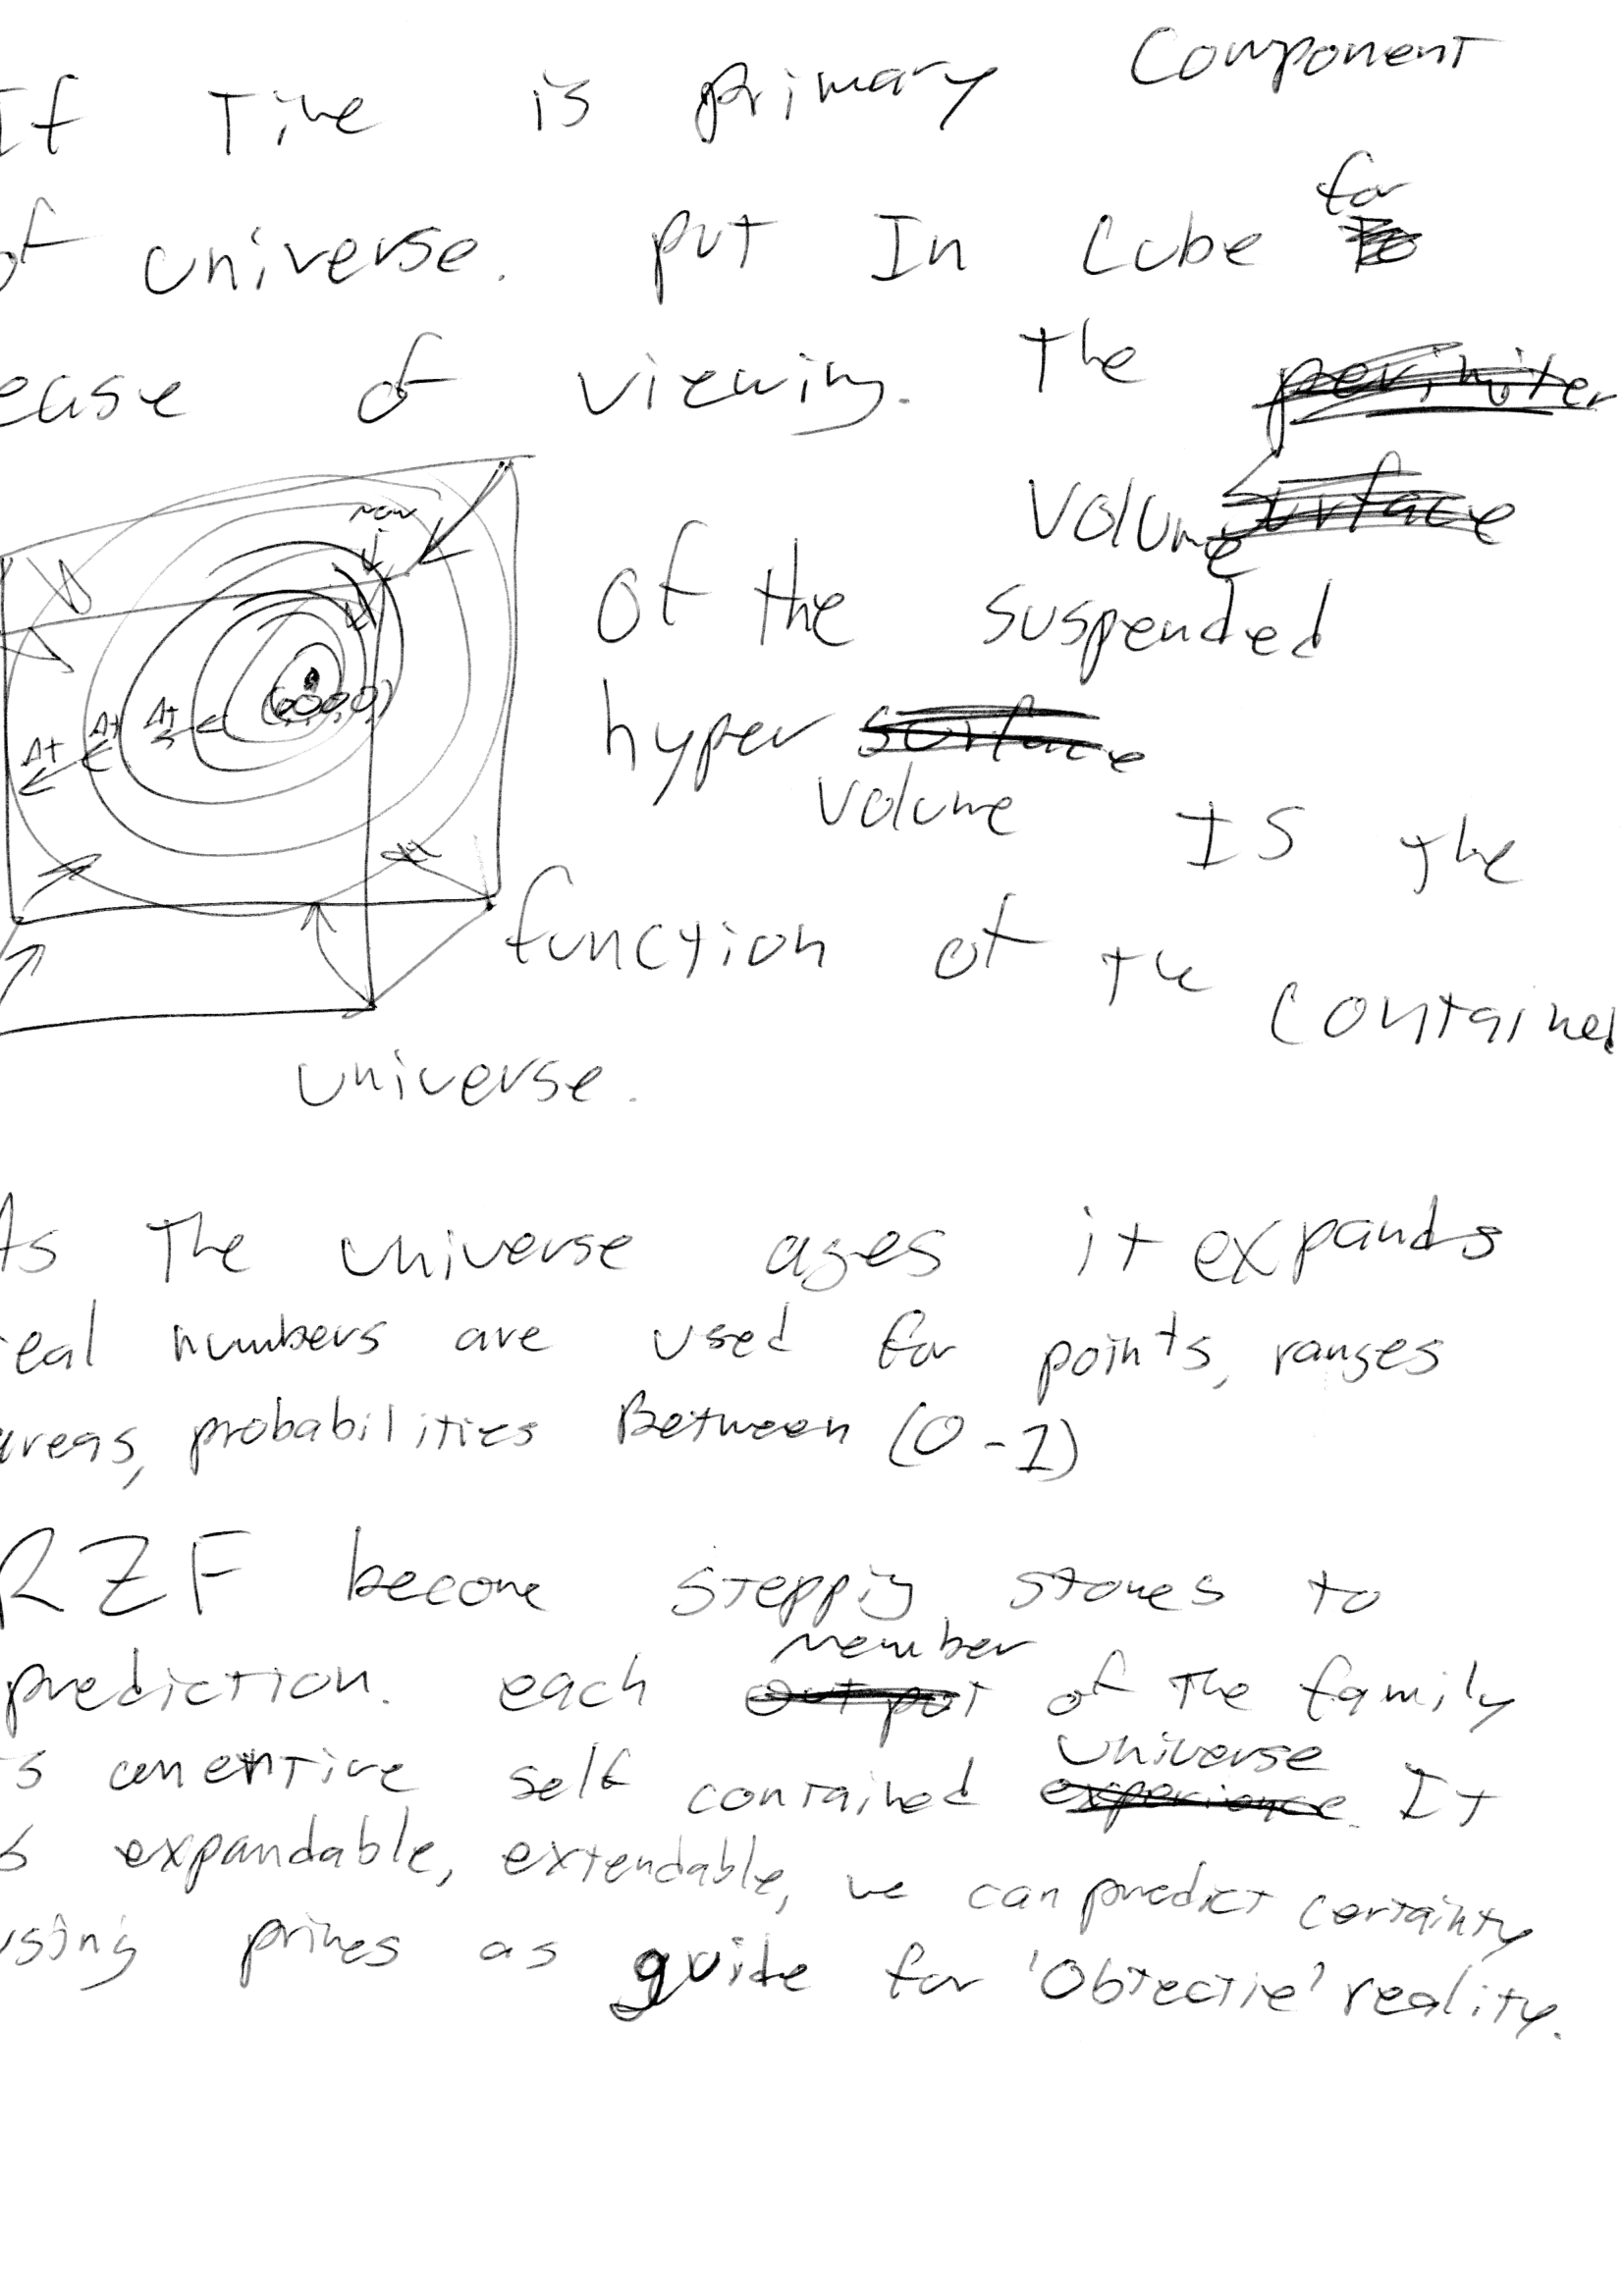 If Time is primary Component
of universe. put In Cube for
ease of viewing. The perimiter
Volume surface
of the suspended
hyper surface
volume IS the
function of the contained
universe.
now
(0,0,0,0)
Δt Δt Δt
As The universe ages it expands
real numbers are used for points, ranges
areas, probabilities Between (0-1)
RZF become stepping stones to
prediction. each output member of The family
is an entire self contained experience universe. It
is expandable, extendable, we can predict certainty
using primes as guide for 'Obtectie' reality.